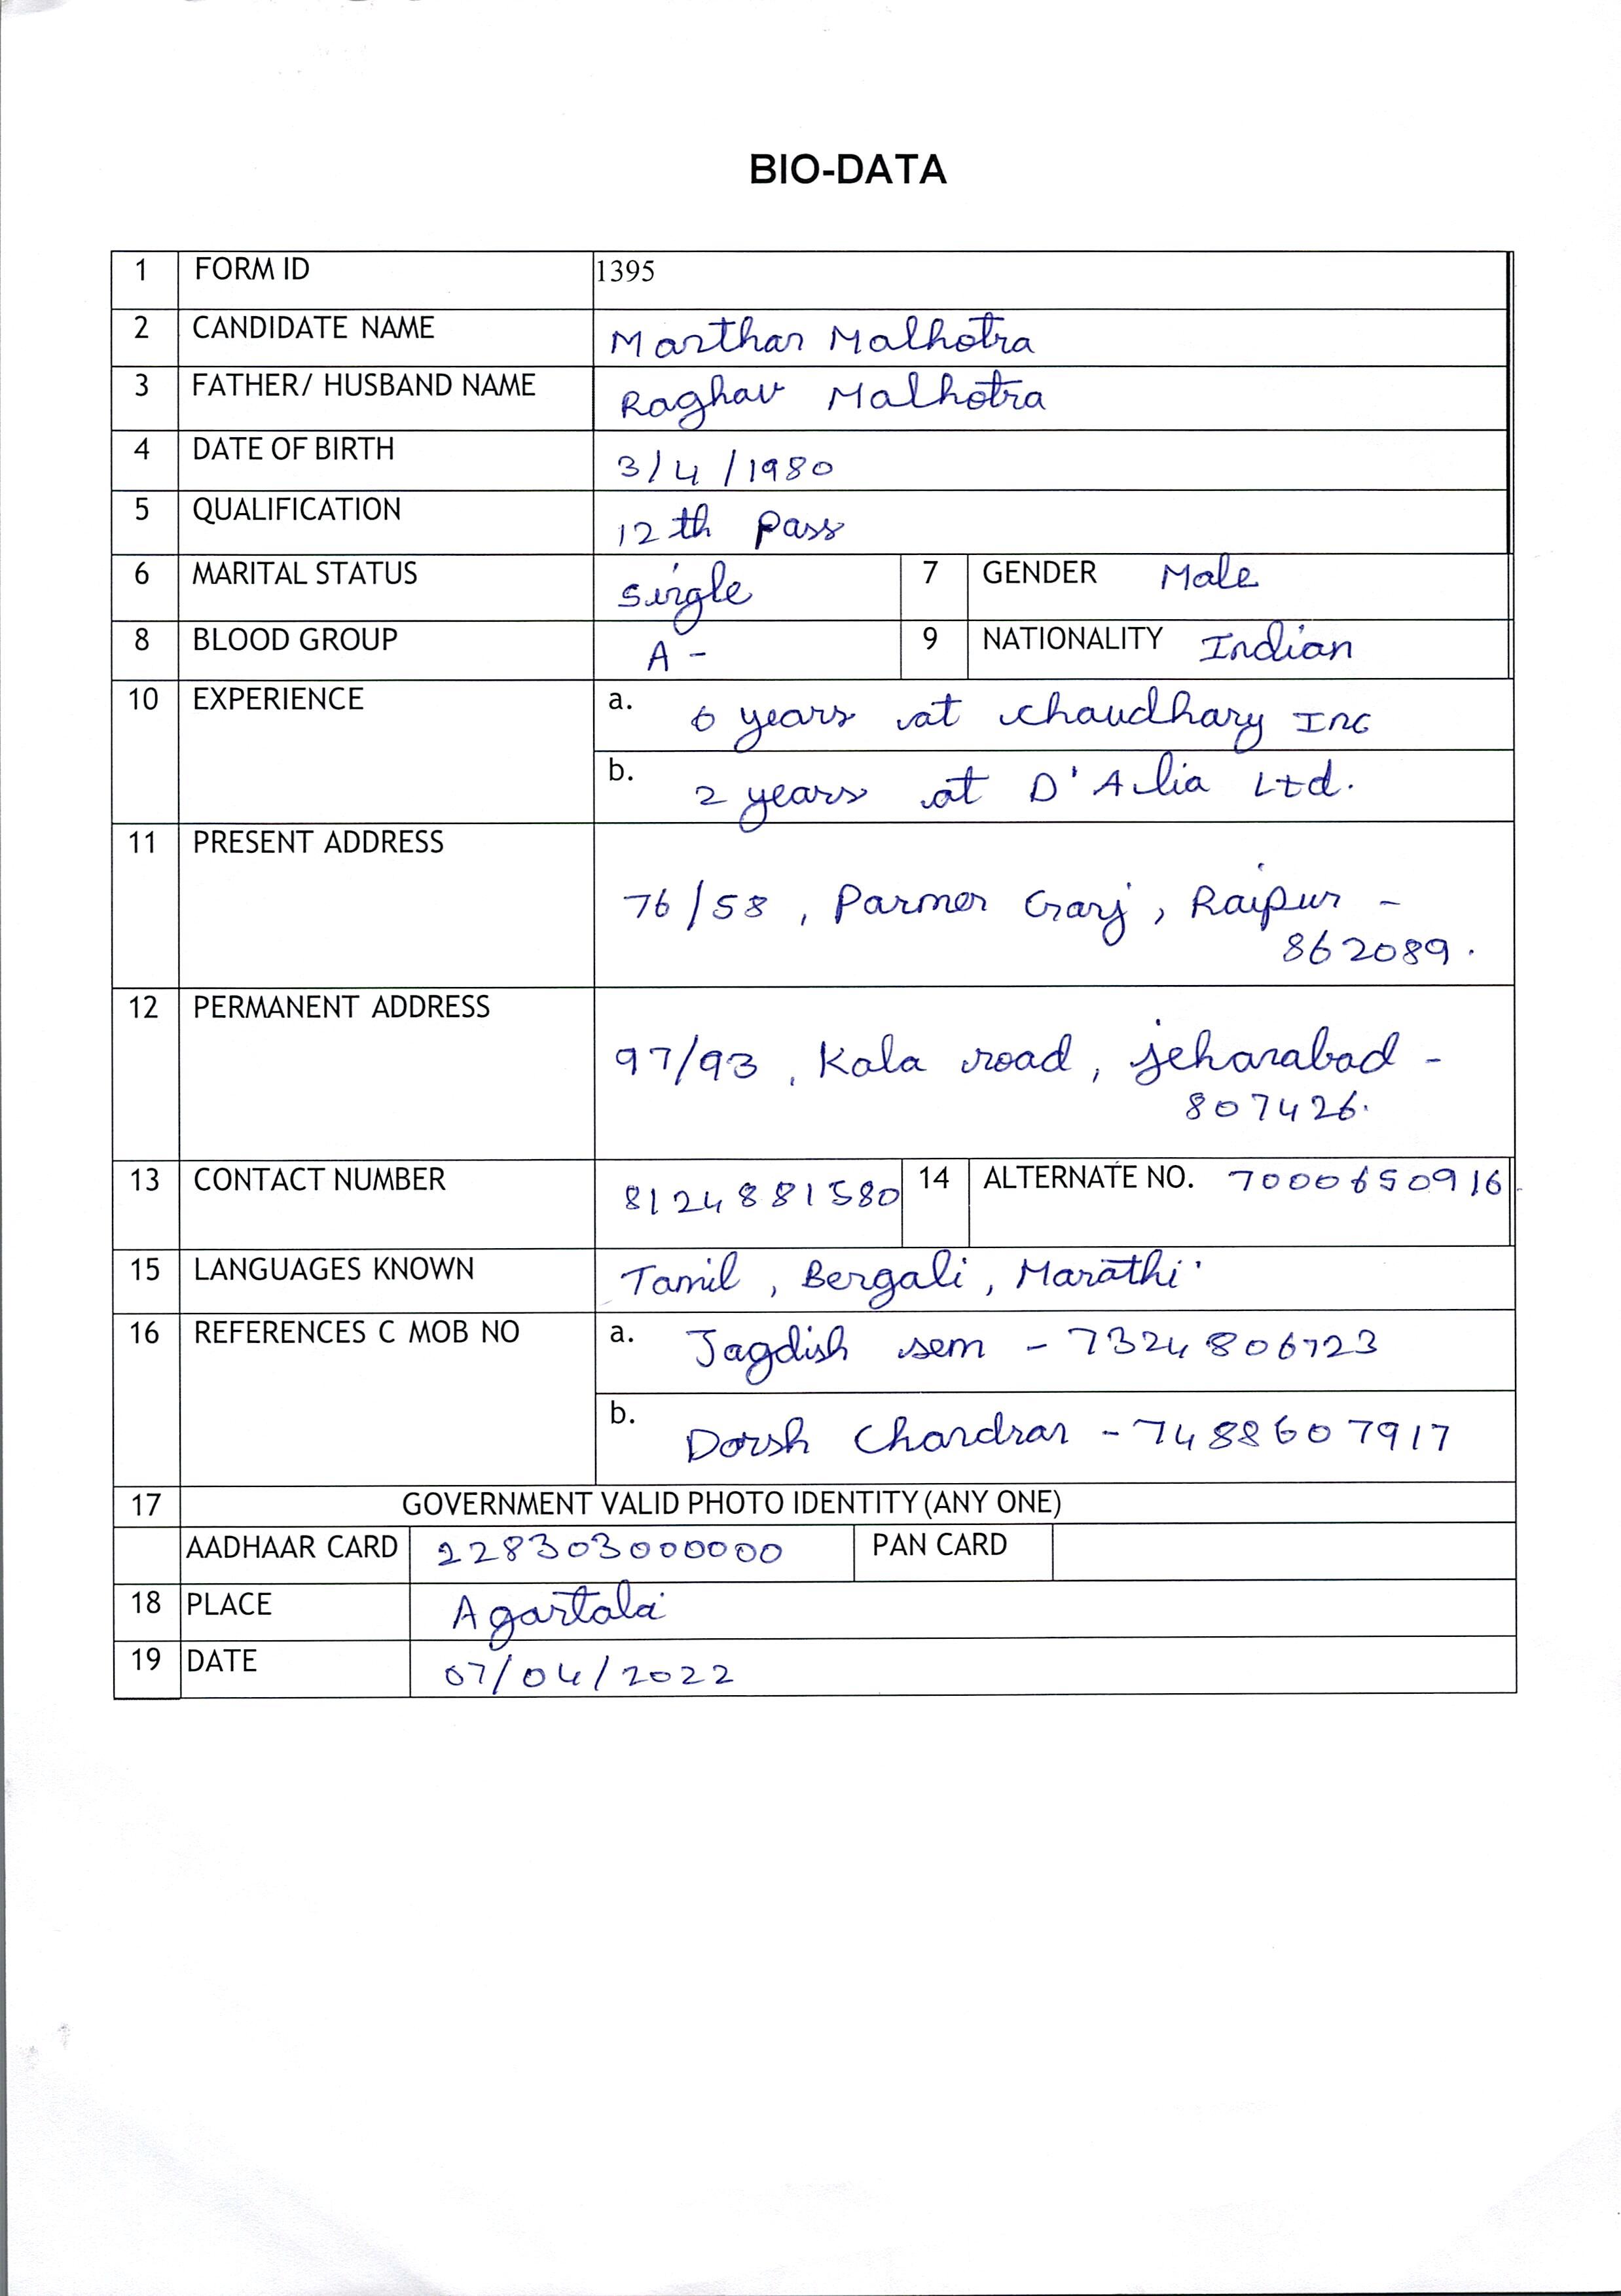 BIO-DATA
1 FORM ID 1395
2 CANDIDATE NAME Manthan Malhotra
3 FATHER/ HUSBAND NAME Raghav Malhotra
4 DATE OF BIRTH 3/4/1980
5 QUALIFICATION 12th Pass
6 MARITAL STATUS single 7 GENDER Male
8 BLOOD GROUP A- 9 NATIONALITY Indian
10 EXPERIENCE a. 6 years at Chaudhary Inc
b. 2 years at D'Alia Ltd.
11 PRESENT ADDRESS
76/58, Parmer Ganj, Raipur -
862089.
12 PERMANENT ADDRESS
97/93, Kala road, jehanabad -
807426.
13 CONTACT NUMBER 8124881580 14 ALTERNATE NO. 7000650916
15 LANGUAGES KNOWN Tamil, Bengali, Marathi
16 REFERENCES C MOB NO a. Jagdish sem - 7324806723
b. Darsh Chandran - 7488607917
17 GOVERNMENT VALID PHOTO IDENTITY (ANY ONE)
AADHAAR CARD 228303000000 PAN CARD
18 PLACE Agartala
19 DATE 07/04/2022